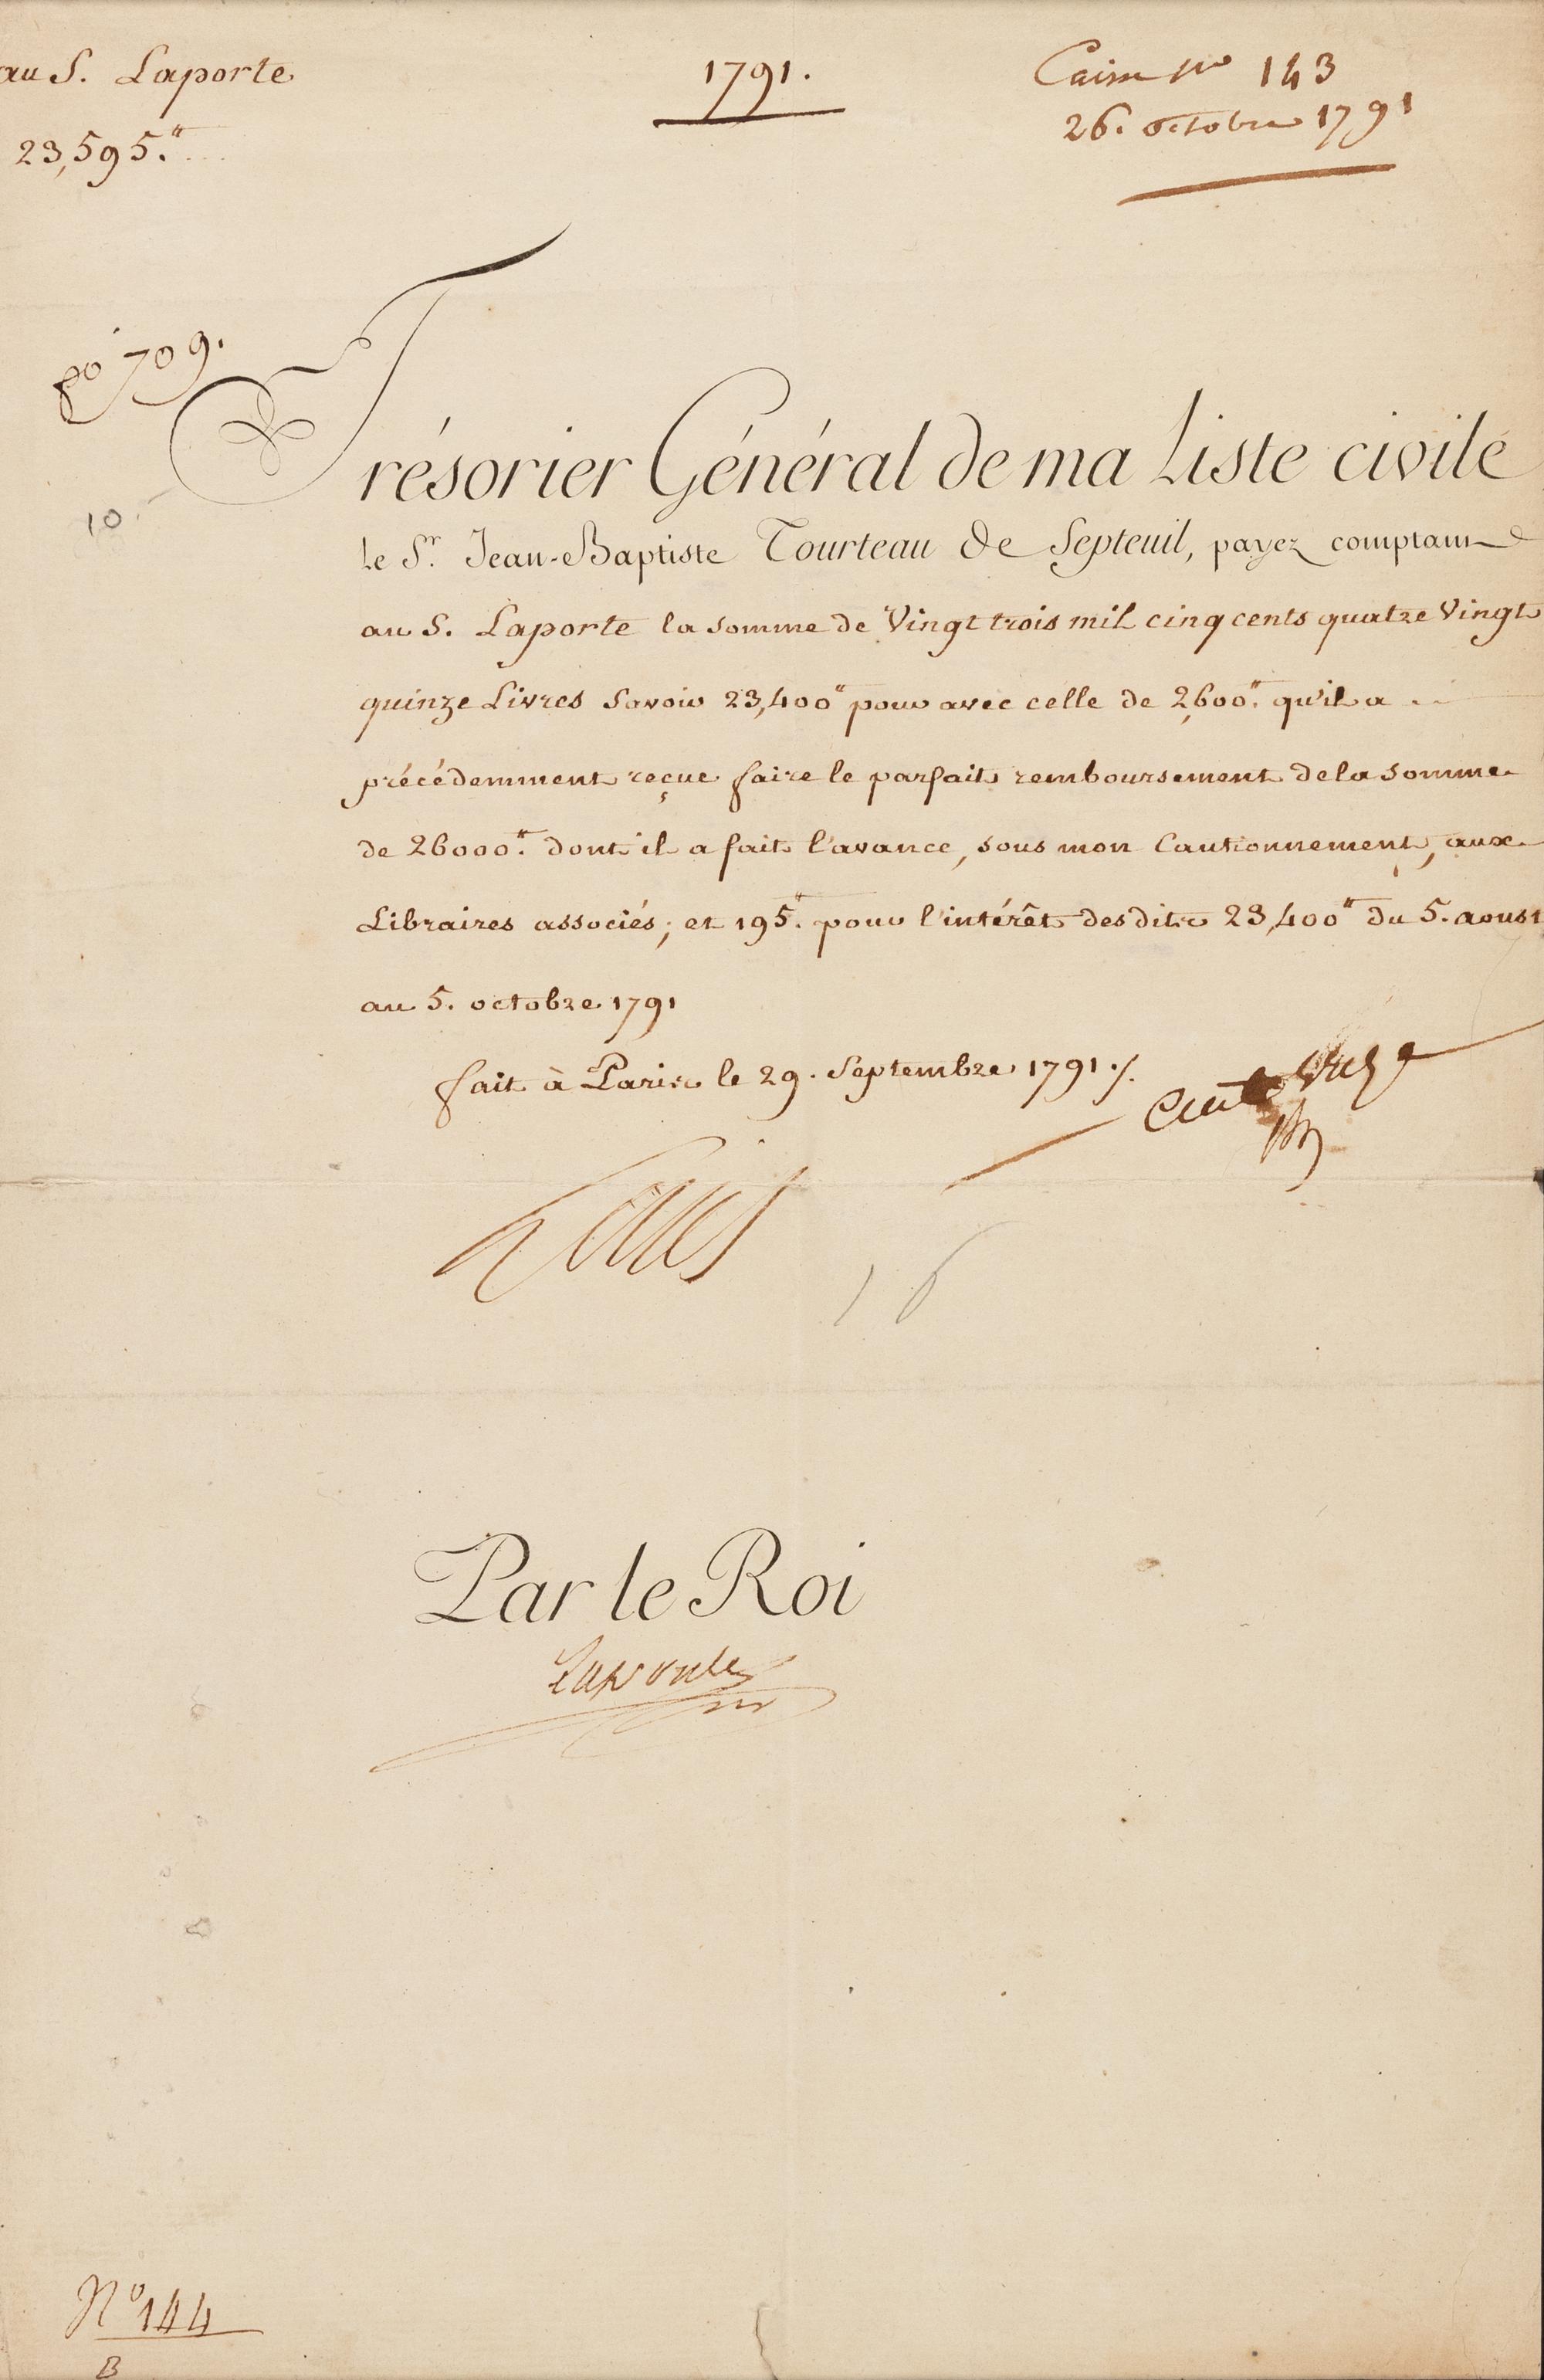 au S. Laporte
23,595.
1791.
Caisse No 143
26. octobre 1791
fo 709.
10
Trésorier Général de ma Liste civile
le Sr. Jean-Baptiste Tourteau de Septeuil, payez comptant
au S. Laporte la somme de Vingt trois mil cinq cents quatre Vingt
quinze Livres Savoir 23,400" pour avec celle de 2,600". qu'il a
précédemment reçue faire le parfait remboursement de la somme
de 26000". dont il a fait l'avance, sous mon Cautionnement, aux
Libraires associés; et 195". pour l'intérêt desdites 23,400" du 5. aoust
au 5. octobre 1791
fait à Paris le 29. Septembre 1791./.
Louis
16
Par le Roi
Laporte
No 144
B